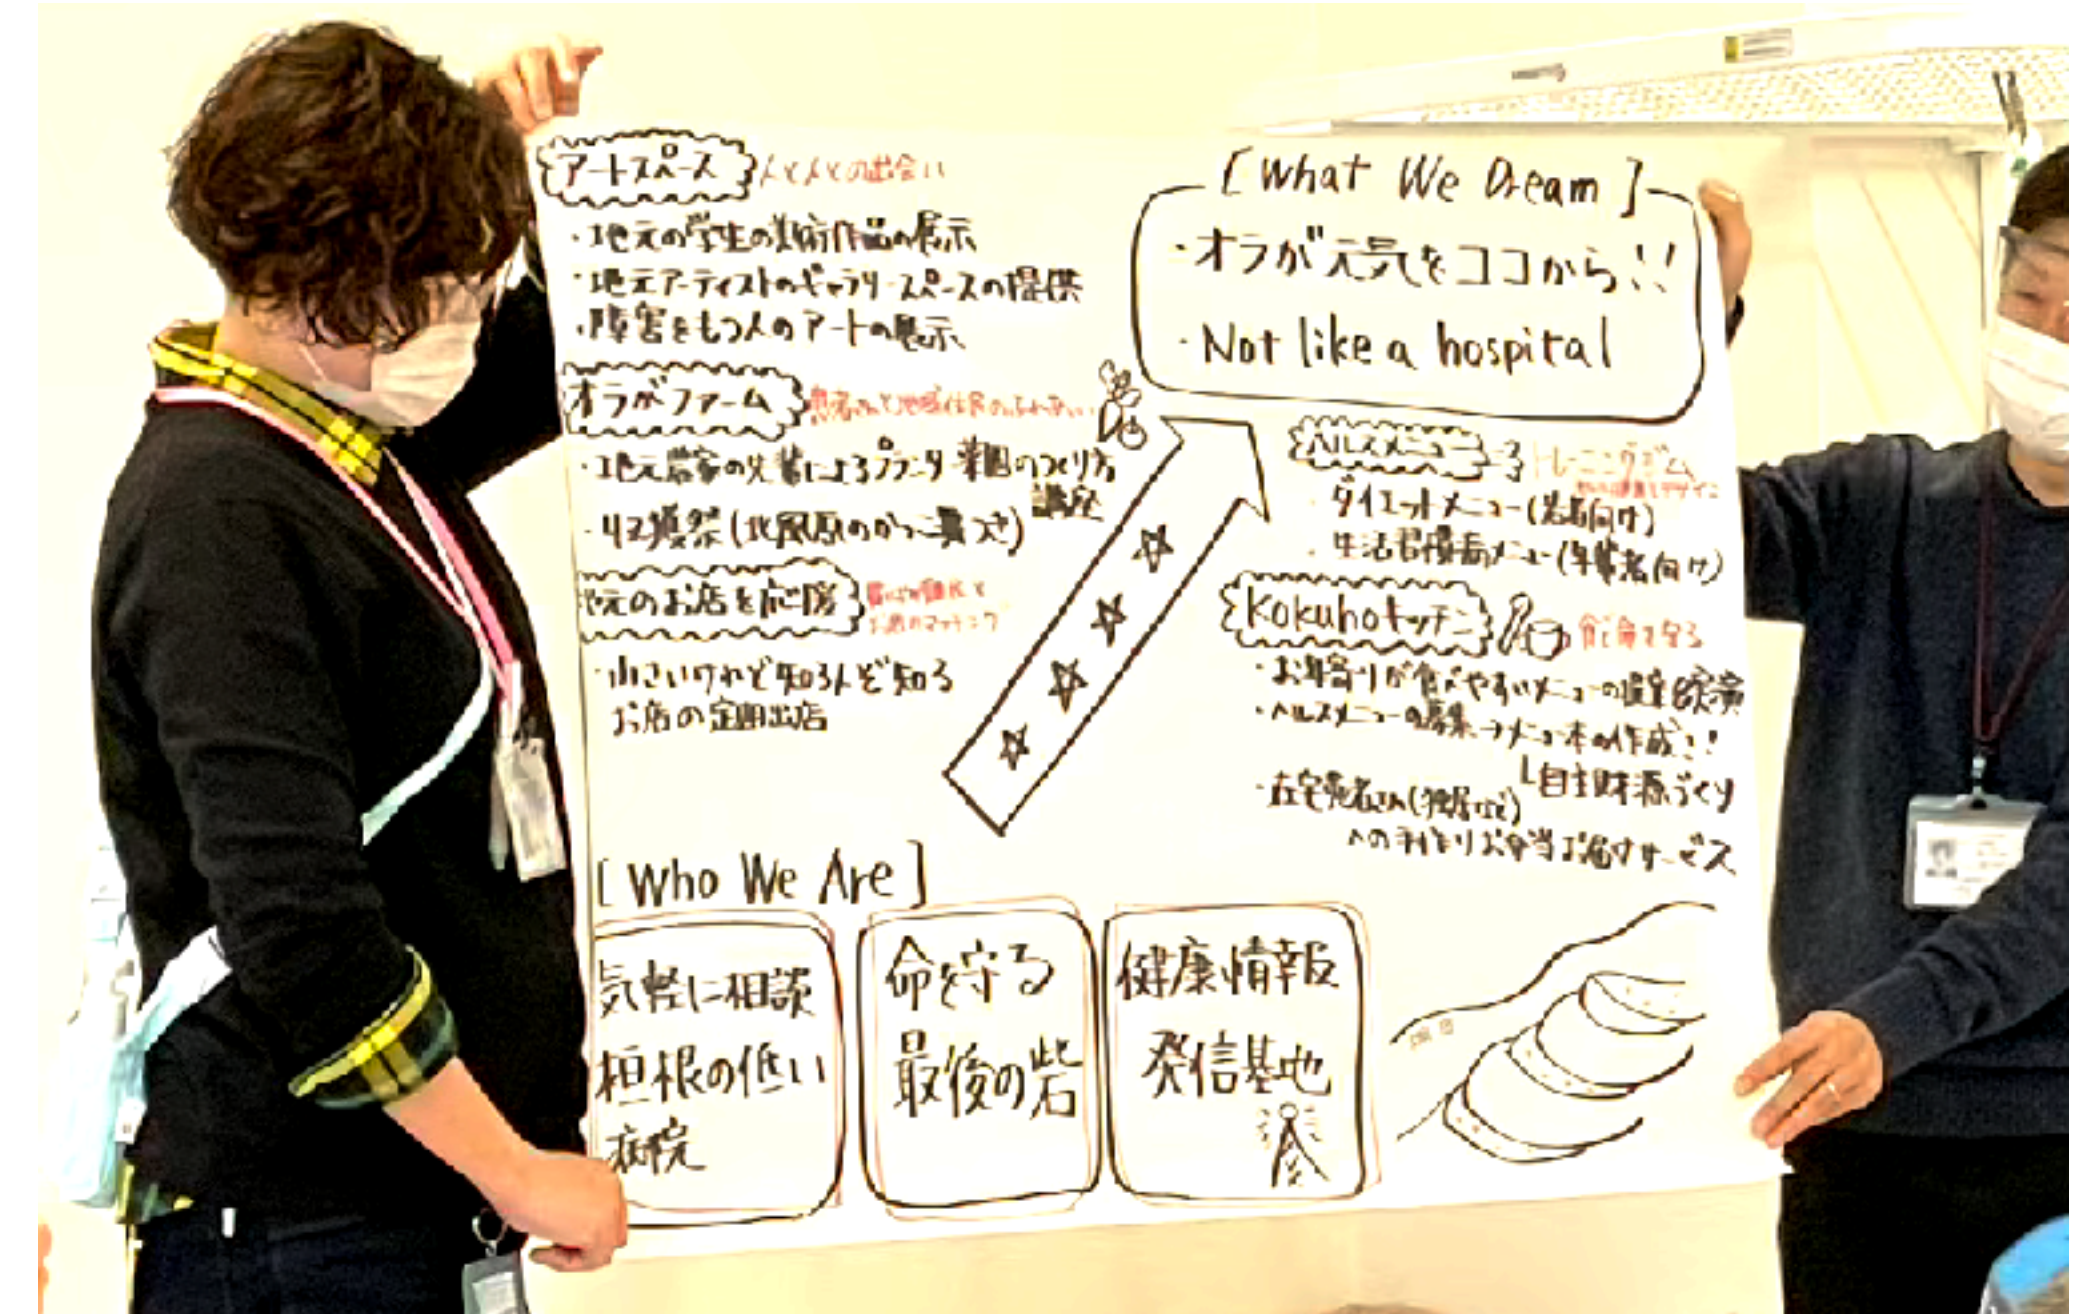 アートスペース
人と人との出会い
・地元の学生の美術作品の展示
・地元アーティストのギャラリースペースの提供
・障害をもつ人のアートの展示
オラがファーム
患者さんと地域住民のふれあい
・地元農家の先輩によるプランター菜園のつくり方
講座
・収穫祭(北風原のかっこ舞つき)
元のお店を応援
お店のマッチング
・小さいけれど知る人ぞ知る
お店の定期出店
[What We Dream]
・オラが元気をココから!!
・Not like a hospital
ヘルスメニュー
トレーニングジム
・ダイエットメニュー(若者向け)
・生活習慣病メニュー(年輩者向け)
Kokuhoキッチン
食で命を守る
・お年寄りが食べやすいメニューの提案&実演
・ヘルスメニューの募集→メニュー本の作成!!
└自主財源づくり
・在宅患者さん(独居など)
への手作りお弁当お届けサービス
[Who We Are]
気軽に相談
垣根の低い
病院
命を守る
最後の砦
健康情報
発信基地